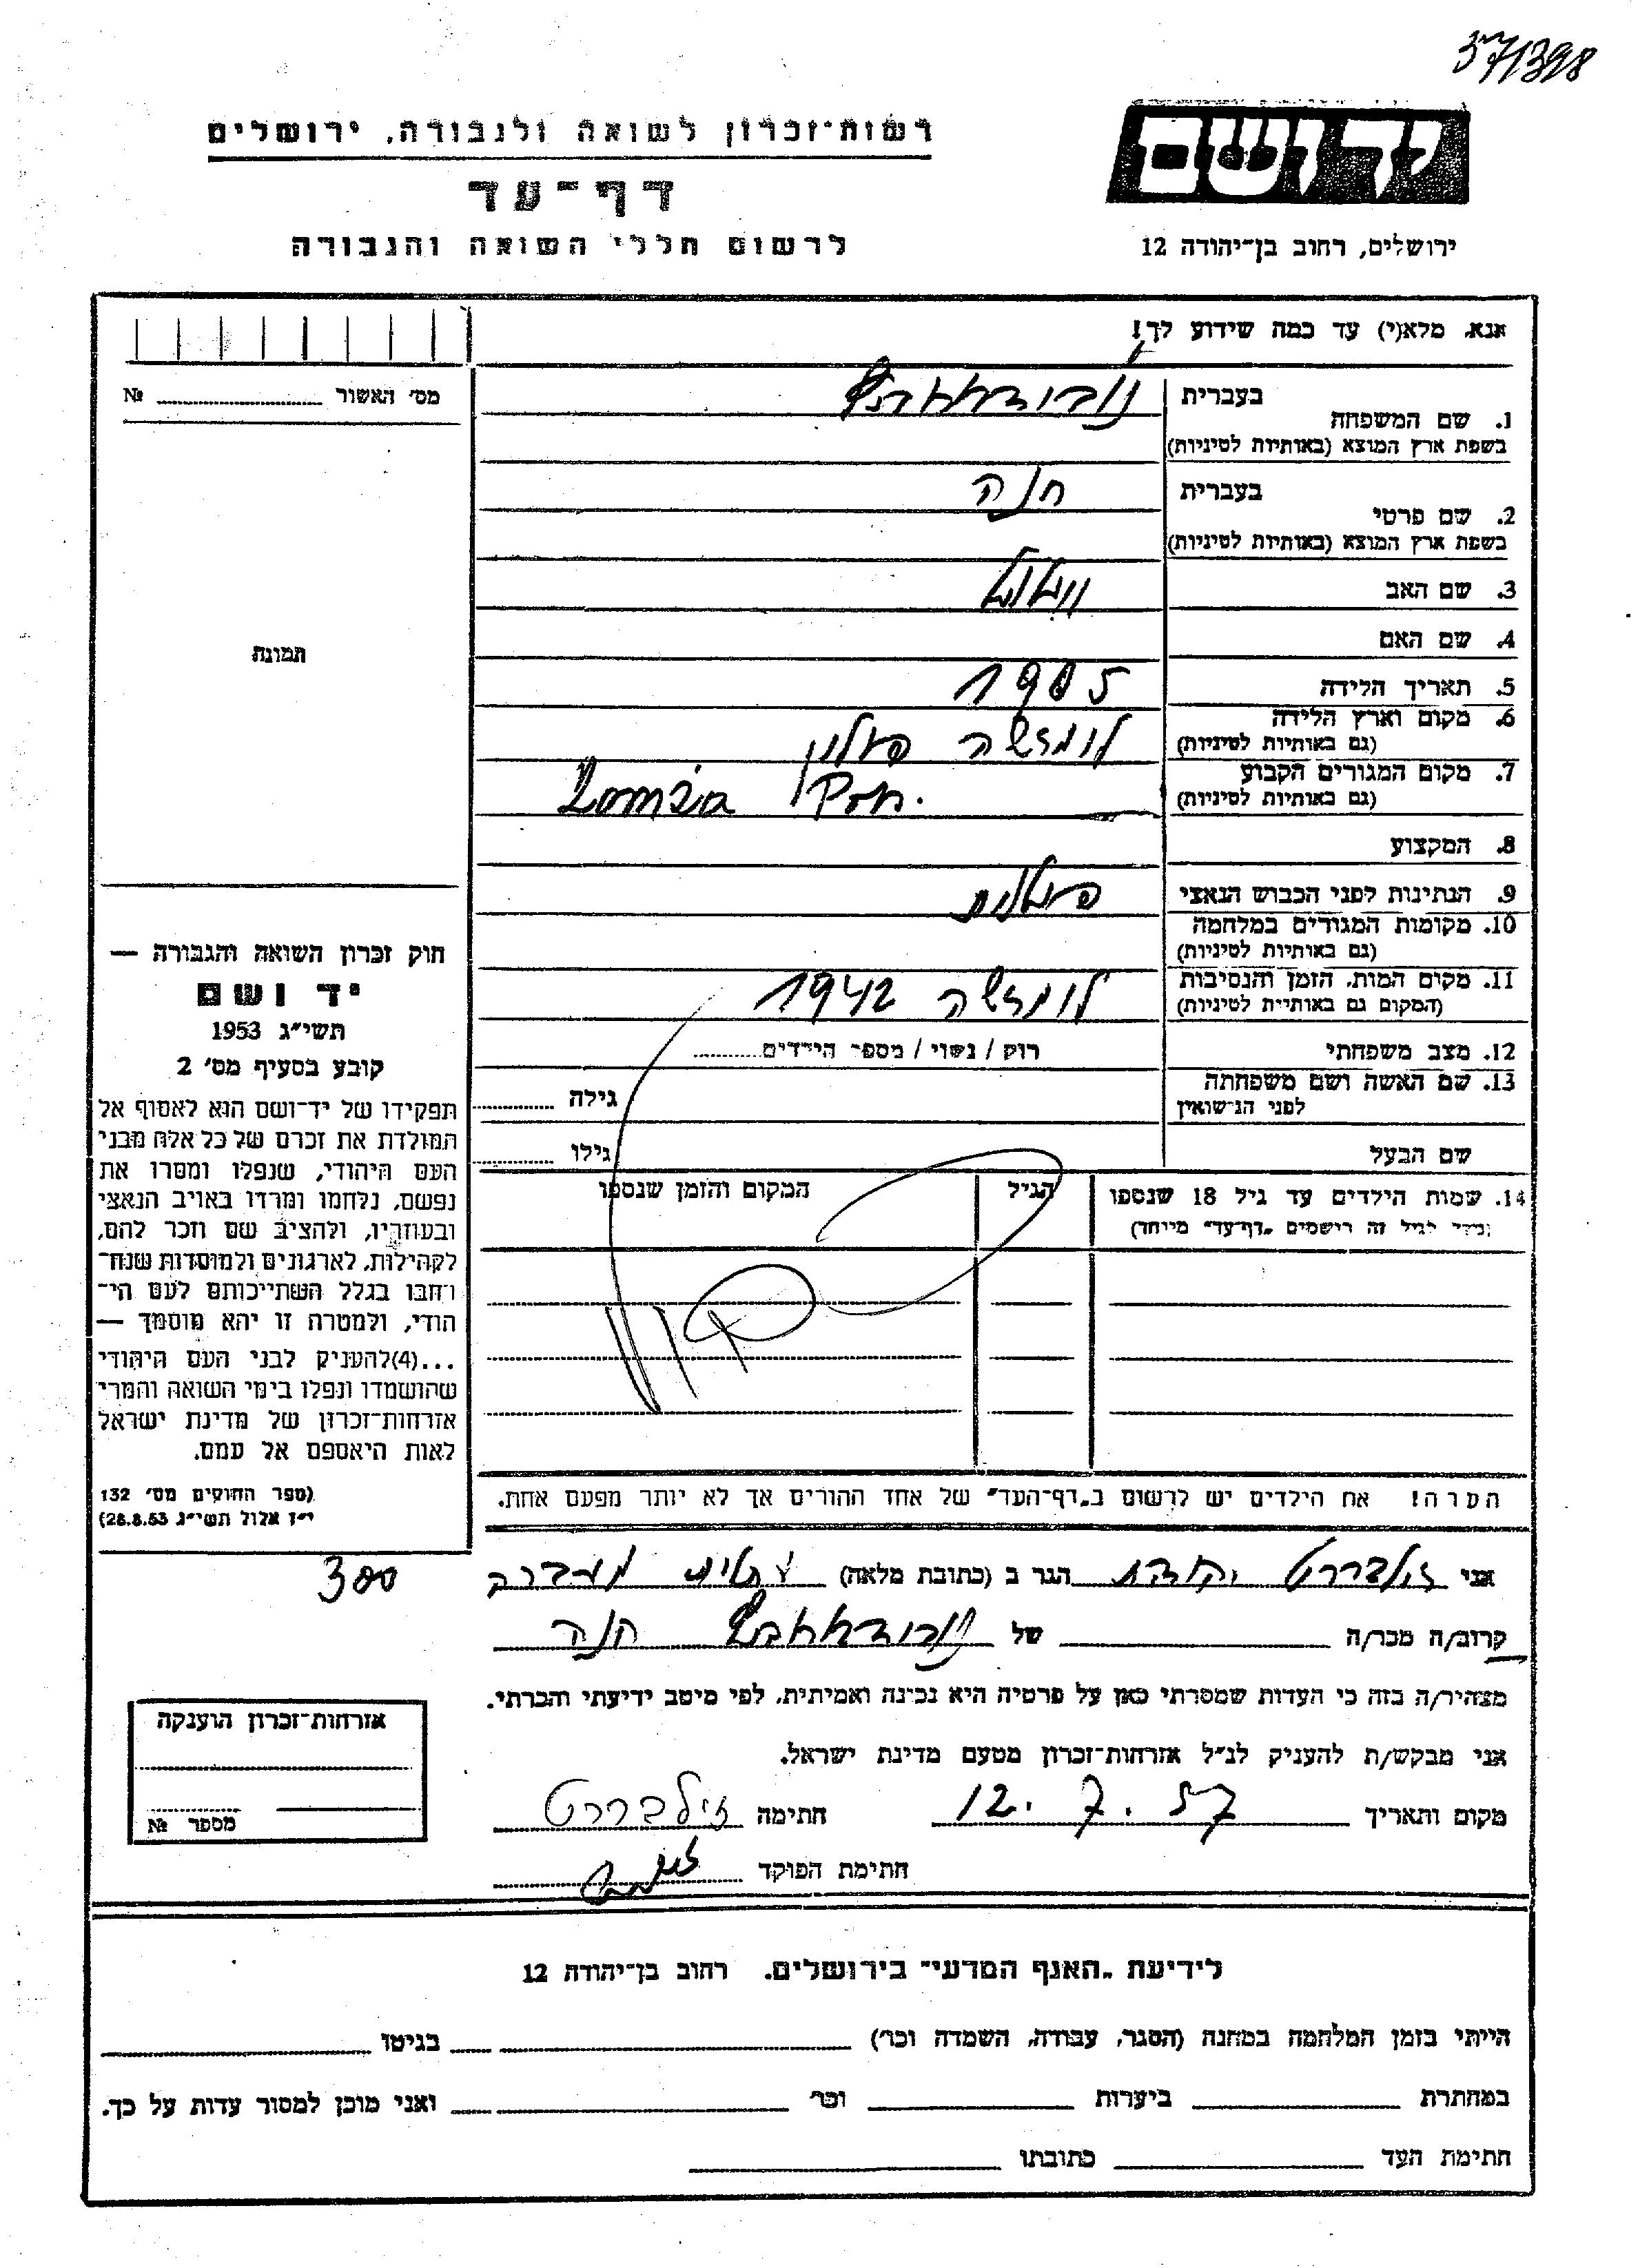 57/398
יד ושם
רשות־זכרון לשואה ולגבורה, ירושלים
דף־עד
לרשום חללי השואה והגבורה
ירושלים, רחוב בן־יהודה 12
אנא, מלא(י) עד כמה שידוע לך!
מס׳ האשור № 
1. שם המשפחה
בעברית
בשפת ארץ המוצא (באותיות לטיניות)
2. שם פרטי
בעברית חנה
בשפת ארץ המוצא (באותיות לטיניות)
3. שם האב
4. שם האם
5. תאריך הלידה 1905
6. מקום וארץ הלידה לומזשה פולין
(גם באותיות לטיניות)
7. מקום המגורים הקבוע Łomża Pol.
(גם באותיות לטיניות)
8. המקצוע
9. הנתינות לפני הכבוש הנאצי פולנית
10. מקומות המגורים במלחמה
(גם באותיות לטיניות)
11. מקום המות, הזמן והנסיבות לומזשה 1942
(המקום גם באותיות לטיניות)
12. מצב משפחתי רוק / נשוי / מספר הילדים
13. שם האשה ושם משפחתה גילה
לפני הנישואין
שם הבעל גילו
14. שמות הילדים עד גיל 18 שנספו הגיל המקום והזמן שנספו
(מעל לגיל זה רישמים „דף־עד״ מיוחד)
הערה! את הילדים יש לרשום ב„דף־העד״ של אחד ההורים אך לא יותר מפעם אחת.
תמונה
חוק זכרון השואה והגבורה —
יד ושם
תשי״ג 1953
קובע בסעיף מס׳ 2
תפקידו של יד־ושם הוא לאסוף אל
המולדת את זכרם של כל אלה מבני
העם היהודי, שנפלו ומסרו את
נפשם, נלחמו ומרדו באויב הנאצי
ובעוזריו, ולהציב שם וזכר להם,
לקהילות, לארגונים ולמוסדות שנח־
רחבו בגלל השתייכותם לעם הי־
הודי, ולמטרה זו יהא מוסמך —
...(4)להעניק לבני העם היהודי
שהושמדו ונפלו בימי השואה והמרי
אזרחות־זכרון של מדינת ישראל
לאות היאספם אל עמם.
(ספר החוקים מס׳ 132
י״ז אלול תשי״ג 28.8.53)
300
אני זילברברט הגר ב (כתובת מלאה)
קרוב/ה מכר/ה של חנה
מצהיר/ה בזה כי העדות שמסרתי כאן על פרטיה היא נכונה ואמיתית, לפי מיטב ידיעתי והכרתי.
אני מבקש/ת להעניק לנ״ל אזרחות־זכרון מטעם מדינת ישראל.
מקום ותאריך 12.7.57 חתימה
חתימת הפוקד
אזרחות־זכרון הוענקה
מספר №
לידיעת „האגף המדעי״ בירושלים. רחוב בן־יהודה 12
הייתי בזמן המלחמה במחנה (הסגר, עבודה, השמדה וכו׳) בגיטו
במחתרת ביערות וכו׳ ואני מוכן למסור עדות על כך.
חתימת העד כתובתו